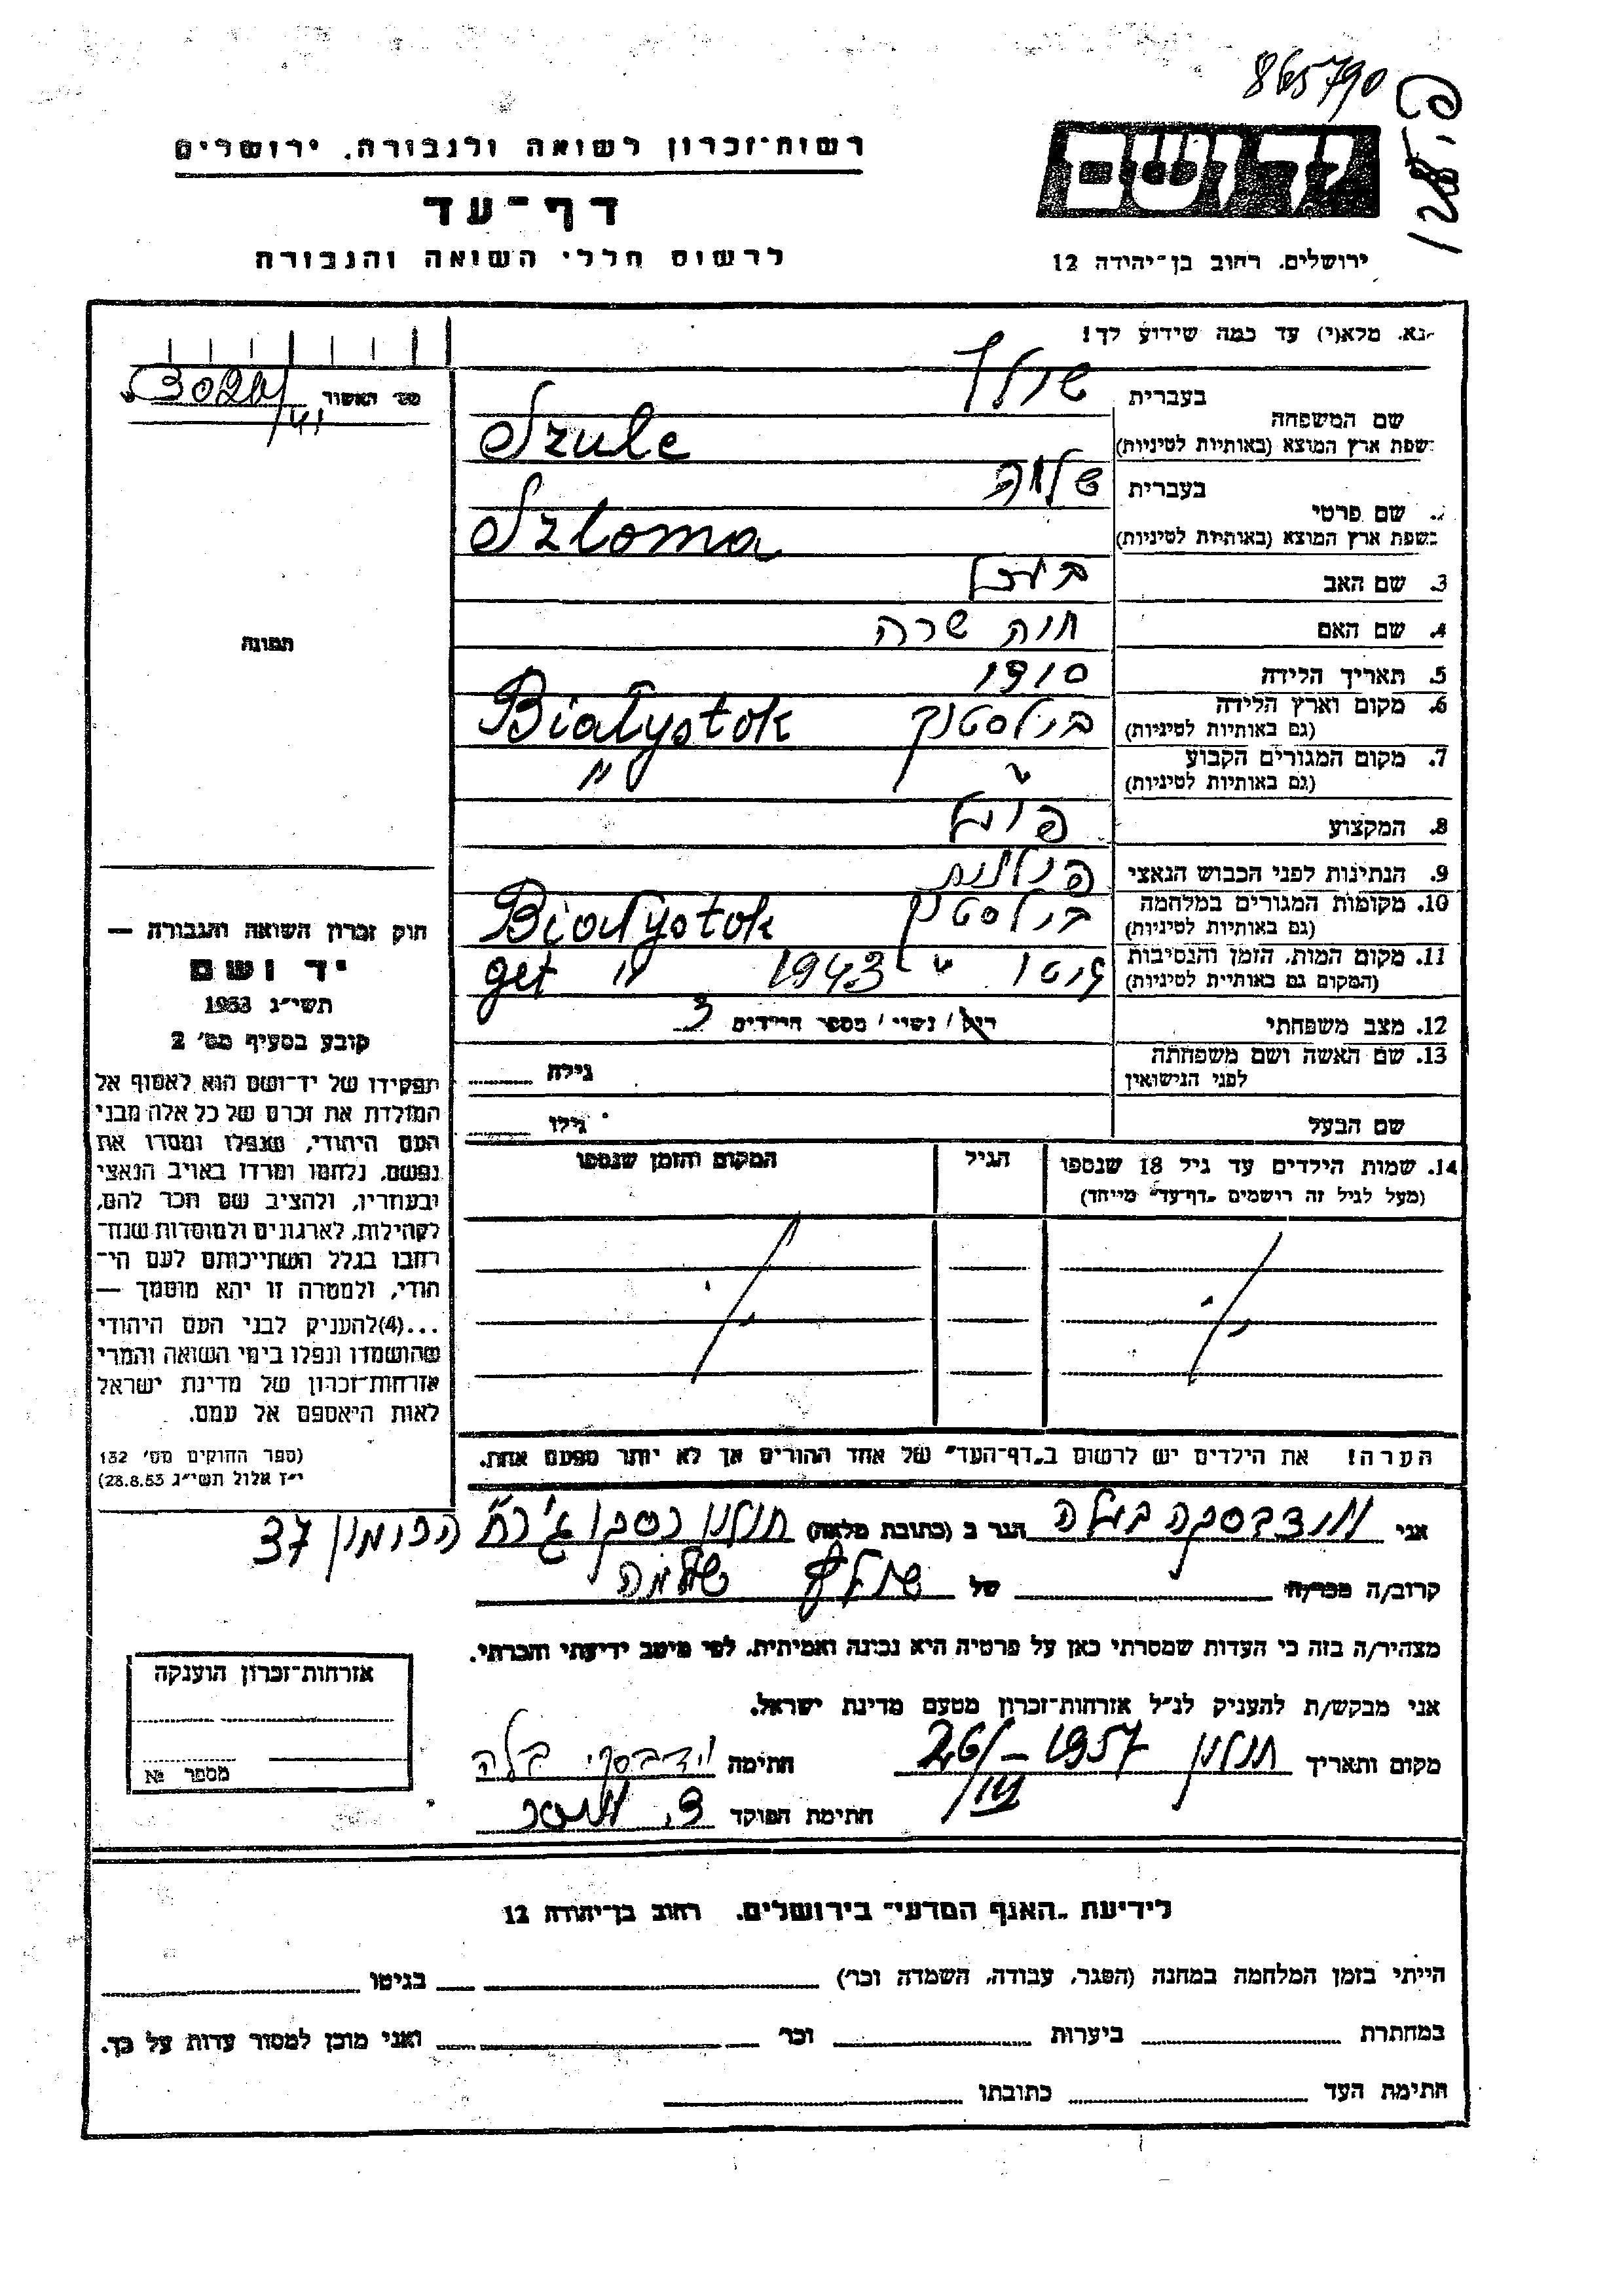 865790
רשות־זכרון לשואה ולגבורה. ירושלים
דף־עד
לרשום חללי השואה והגבורה
יד ושם
ירושלים. רחוב בן־יהודה 12
נא. מלא(י) עד כמה שידוע לך!
מס' האשור
שם המשפחה
בעברית
בשפת ארץ המוצא (באותיות לטיניות)
Szule
שם פרטי
בעברית שלמה
בשפת ארץ המוצא (באותיות לטיניות)
Szloma
3. שם האב
4. שם האם חוה שרה
5. תאריך הלידה 1910
6. מקום וארץ הלידה ביליסטוק Białystok
(גם באותיות לטיניות)
7. מקום המגורים הקבוע " "
(גם באותיות לטיניות)
8. המקצוע פועל
9. הנתינות לפני הכבוש הנאצי פולנית
10. מקומות המגורים במלחמה ביליסטוק Białystok
(גם באותיות לטיניות)
11. מקום המות. הזמן והנסיבות גיטו " 1943 " get
(המקום גם באותיות לטיניות)
12. מצב משפחתי רווק / נשוי / מספר הילדים 3
13. שם האשה ושם משפחתה גילה
לפני הנישואין
שם הבעל גילו
14. שמות הילדים עד גיל 18 שנספו הגיל המקום והזמן שנספו
(מעל לגיל זה רושמים "דף־עד" מייוחד)
הערה! את הילדים יש לרשום ב"דף־העד" של אחד ההורים אך לא יותר מפעם אחת.
תמונה
חוק זכרון השואה והגבורה —
יד ושם
תשי"ג 1953
קובע בסעיף מס' 2
תפקידו של יד־ושם הוא לאסוף אל
המולדת את זכרם של כל אלה מבני
העם היהודי, שנפלו ומסרו את
נפשם, נלחמו ומרדו באויב הנאצי
ובעוזריו, ולהציב שם וזכר להם,
לקהילות, לארגונים ולמוסדות שנח־
רבו בגלל השתייכותם לעם הי־
הודי, ולמטרה זו יהא מוסמך —
...(4)להעניק לבני העם היהודי
שהושמדו ונפלו בימי השואה והמרי
אזרחות־זכרון של מדינת ישראל
לאות היאספם אל עמם.
(ספר החוקים מס' 132
י"ז אלול תשי"ג 28.8.53)
אני בלה הגר ב (כתובת מלאה) חולון 37
קרוב/ה מכר/ה של שלמה
מצהיר/ה בזה כי העדות שמסרתי כאן על פרטיה היא נכונה ואמיתית. לפי מיטב ידיעתי והכרתי.
אני מבקש/ת להעניק לנ"ל אזרחות־זכרון מטעם מדינת ישראל.
מקום ותאריך חולון 26/III - 1957 חתימה בלה
חתימת הפוקד
אזרחות־זכרון הוענקה
מספר №
לידיעת "האגף המדעי" בירושלים. רחוב בן־יהודה 12
הייתי בזמן המלחמה במחנה (הסגר, עבודה, השמדה וכר') בגיטו
במחתרת ביערות וכר' ואני מוכן למסור עדות על כך.
חתימת העד כתובתו